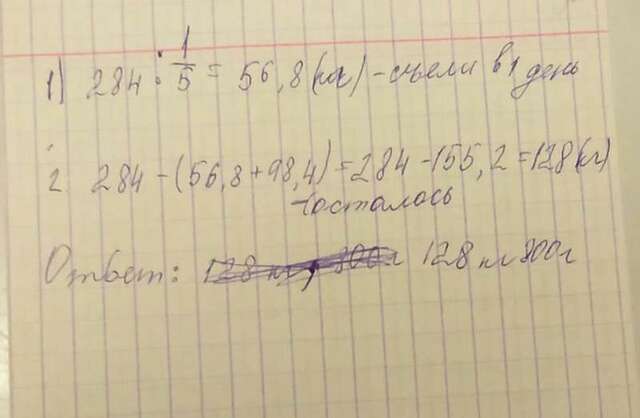 1) 284 : 1/5 = 56,8 (кг) - съели в 1 день
2. 284 - (56,8 + 98,4) = 284 - 155,2 = 128 (кг)
- осталось
Ответ: 128 кг 800 г